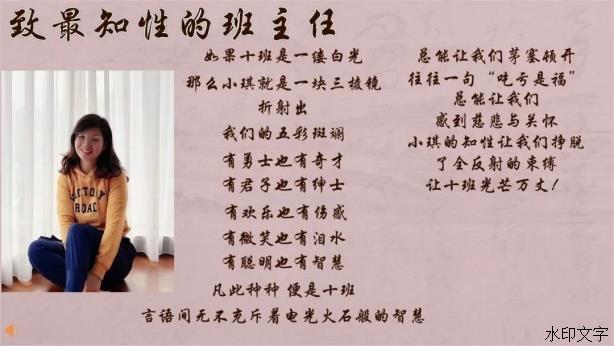 致最知性的班主任
如果十班是一缕白光
那么小琪就是一块三棱镜
折射出
我们的五彩斑斓
有勇士也有奇才
有君子也有绅士
有欢乐也有伤感
有微笑也有泪水
有聪明也有智慧
凡此种种 便是十班
言语间无不充斥着电光火石般的智慧
总能让我们茅塞顿开
往往一句“吃亏是福”
总能让我们
感到慈悲与关怀
小琪的知性让我们挣脱
了全反射的束缚
让十班光芒万丈!
VICTORY
ROAD
水印文字